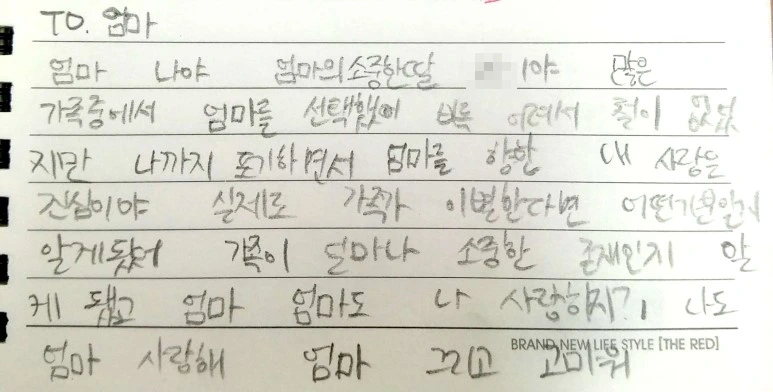 TO. 엄마
엄마 나야 엄마의 소중한 딸 이야 많은
가족중에서 엄마를 선택했어 비록 어려서 철이 없었
지만 나까지 포기하면서 엄마를 향한 내 사랑은
진심이야 실제로 가족과 이별한다면 어떤기분일지
알게됐어 가족이 얼마나 소중한 존재인지 알
게 됐고 엄마 엄마도 나 사랑하지? 나도
BRAND NEW LIFE STYLE [THE RED]
엄마 사랑해 엄마 그리고 고마워